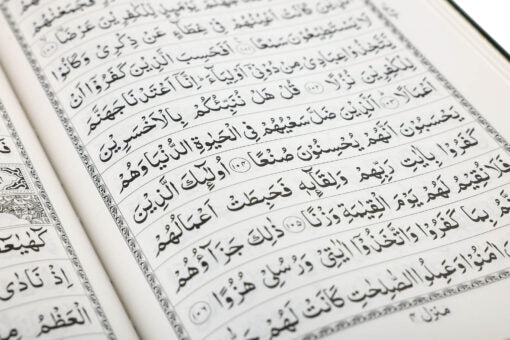 الَّذِيْنَ كَانَتْ اَعْيُنُهُمْ فِيْ غِطَآءٍ عَنْ ذِكْرِيْ وَكَانُوْا
لَا يَسْتَطِيْعُوْنَ سَمْعًا ۝١٠١ اَفَحَسِبَ الَّذِيْنَ كَفَرُوْٓا اَنْ
يَّتَّخِذُوْا عِبَادِيْ مِنْ دُوْنِيْٓ اَوْلِيَآءَ اِنَّآ اَعْتَدْنَا جَهَنَّمَ
لِلْكٰفِرِيْنَ نُزُلًا ۝١٠٢ قُلْ هَلْ نُنَبِّئُكُمْ بِالْاَخْسَرِيْنَ
اَعْمَالًا ۝١٠٣ اَلَّذِيْنَ ضَلَّ سَعْيُهُمْ فِي الْحَيٰوةِ الدُّنْيَا وَهُمْ
يَحْسَبُوْنَ اَنَّهُمْ يُحْسِنُوْنَ صُنْعًا ۝١٠٤ اُولٰٓئِكَ الَّذِيْنَ
كَفَرُوْا بِاٰيٰتِ رَبِّهِمْ وَلِقَآئِهٖ فَحَبِطَتْ اَعْمَالُهُمْ
فَلَا نُقِيْمُ لَهُمْ يَوْمَ الْقِيٰمَةِ وَزْنًا ۝١٠٥ ذٰلِكَ جَزَآؤُهُمْ
بِمَا كَفَرُوْا وَاتَّخَذُوْٓا اٰيٰتِيْ وَرُسُلِيْ هُزُوًا ۝١٠٦
اٰمَنُوْا وَعَمِلُوا الصّٰلِحٰتِ كَانَتْ لَهُمْ
منزل ٤
كٓهٰيٰعٓصٓ
اِذْ نَادٰى
الْعَظْمُ